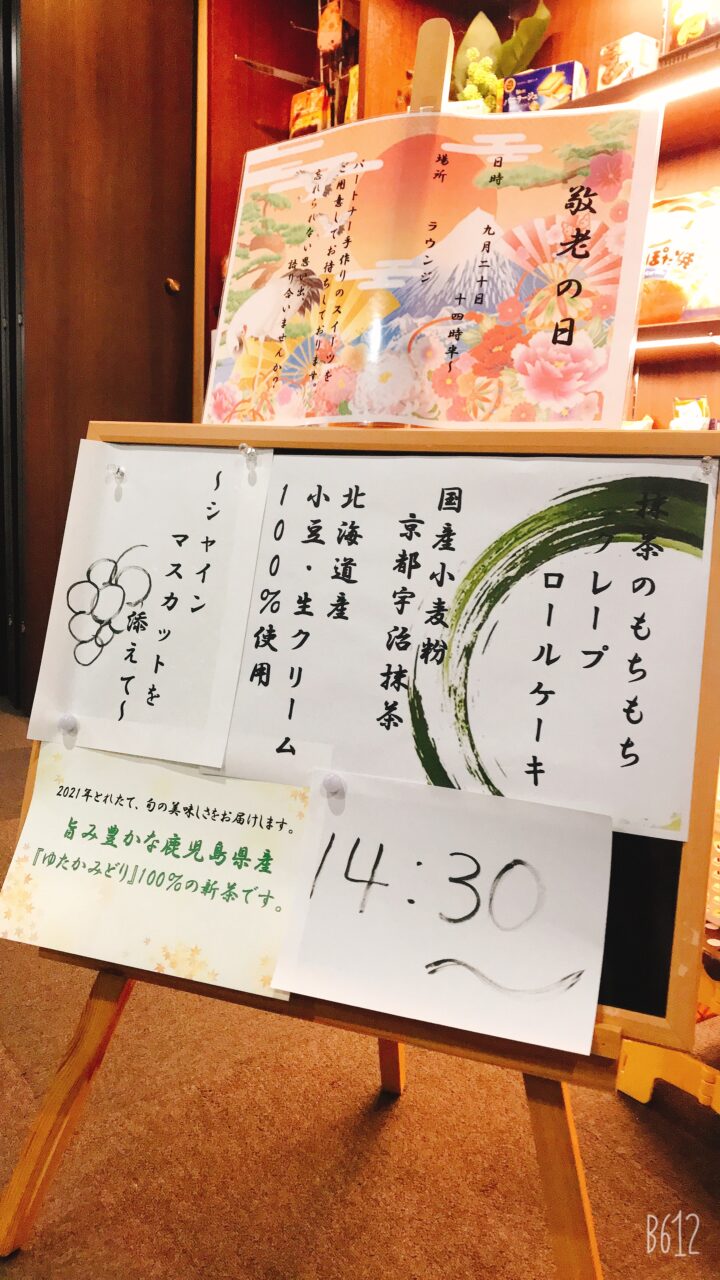 敬老の日
日時 九月二十日
十四時半~
場所 ラウンジ
パートナー手作りのスイーツを
ご用意してお待ちしております。
忘れられない思い出、
語り合いませんか?
抹茶のもちもち
クレープ
ロールケーキ
国産小麦粉
京都宇治抹茶
北海道産
小豆・生クリーム
100%使用
~シャイン
マスカットを
添えて~
2021年とれたて、旬の美味しさをお届けします。
旨み豊かな鹿児島県産
『ゆたかみどり』100%の新茶です。
14:30
~
B612